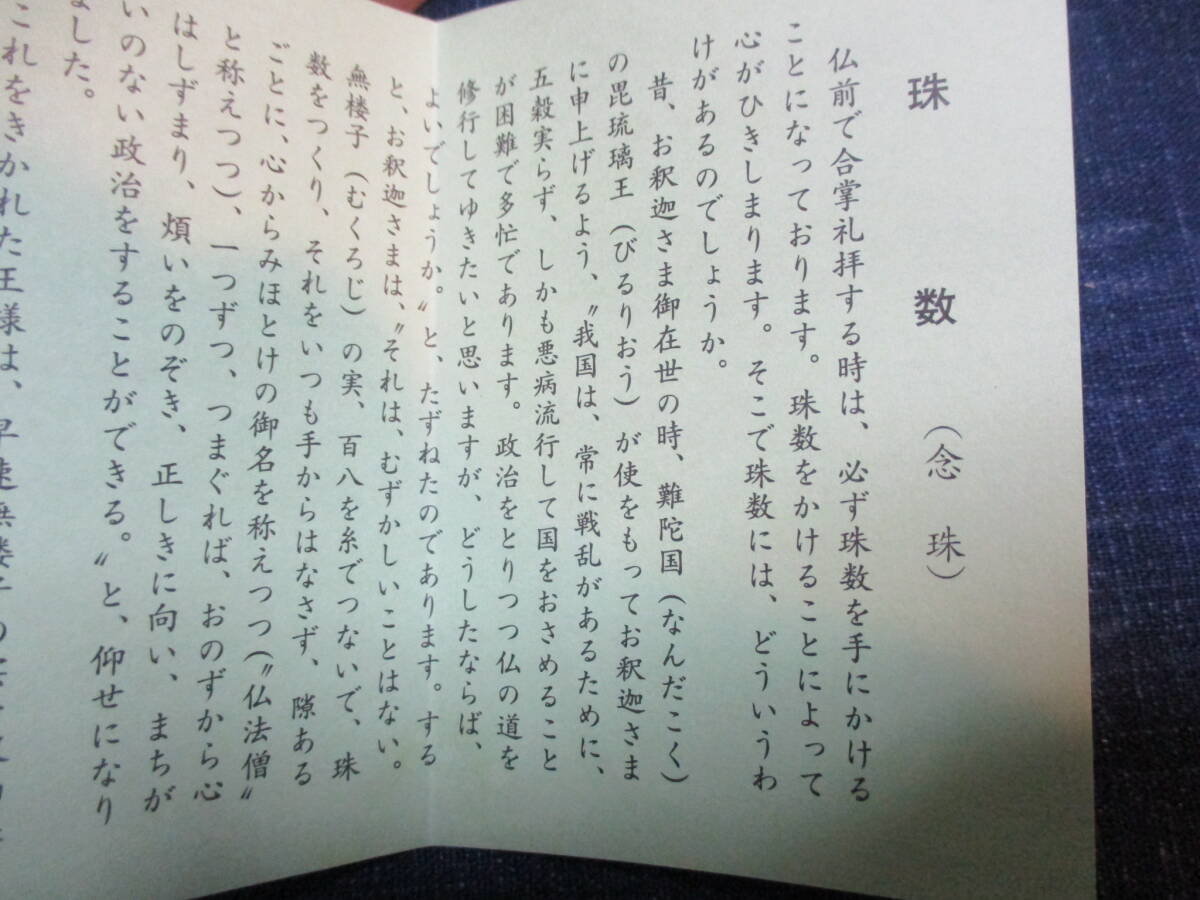 珠数（念珠）
仏前で合掌礼拝する時は、必ず珠数を手にかける
ことになっております。珠数をかけることによって
心がひきしまります。そこで珠数には、どういうわ
けがあるのでしょうか。
昔、お釈迦さま御在世の時、難陀国（なんだこく）
の毘琉璃王（びるりおう）が使をもってお釈迦さま
に申上げるよう、〝我国は、常に戦乱があるために、
五穀実らず、しかも悪病流行して国をおさめること
が困難で多忙であります。政治をとりつつ仏の道を
修行してゆきたいと思いますが、どうしたならば、
よいでしょうか。〟と、たずねたのであります。する
と、お釈迦さまは、〝それは、むずかしいことはない。
無楼子（むくろじ）の実、百八を糸でつないで、珠
数をつくり、それをいつも手からはなさず、隙ある
ごとに、心からみほとけの御名を称えつつ（〝仏法僧〟
と称えつつ）、一つずつ、つまぐれば、おのずから心
はしずまり、煩いをのぞき、正しきに向い、まちが
いのない政治をすることができる。〟と、仰せになり
ました。
これをきかれた王様は、早速無楼子の